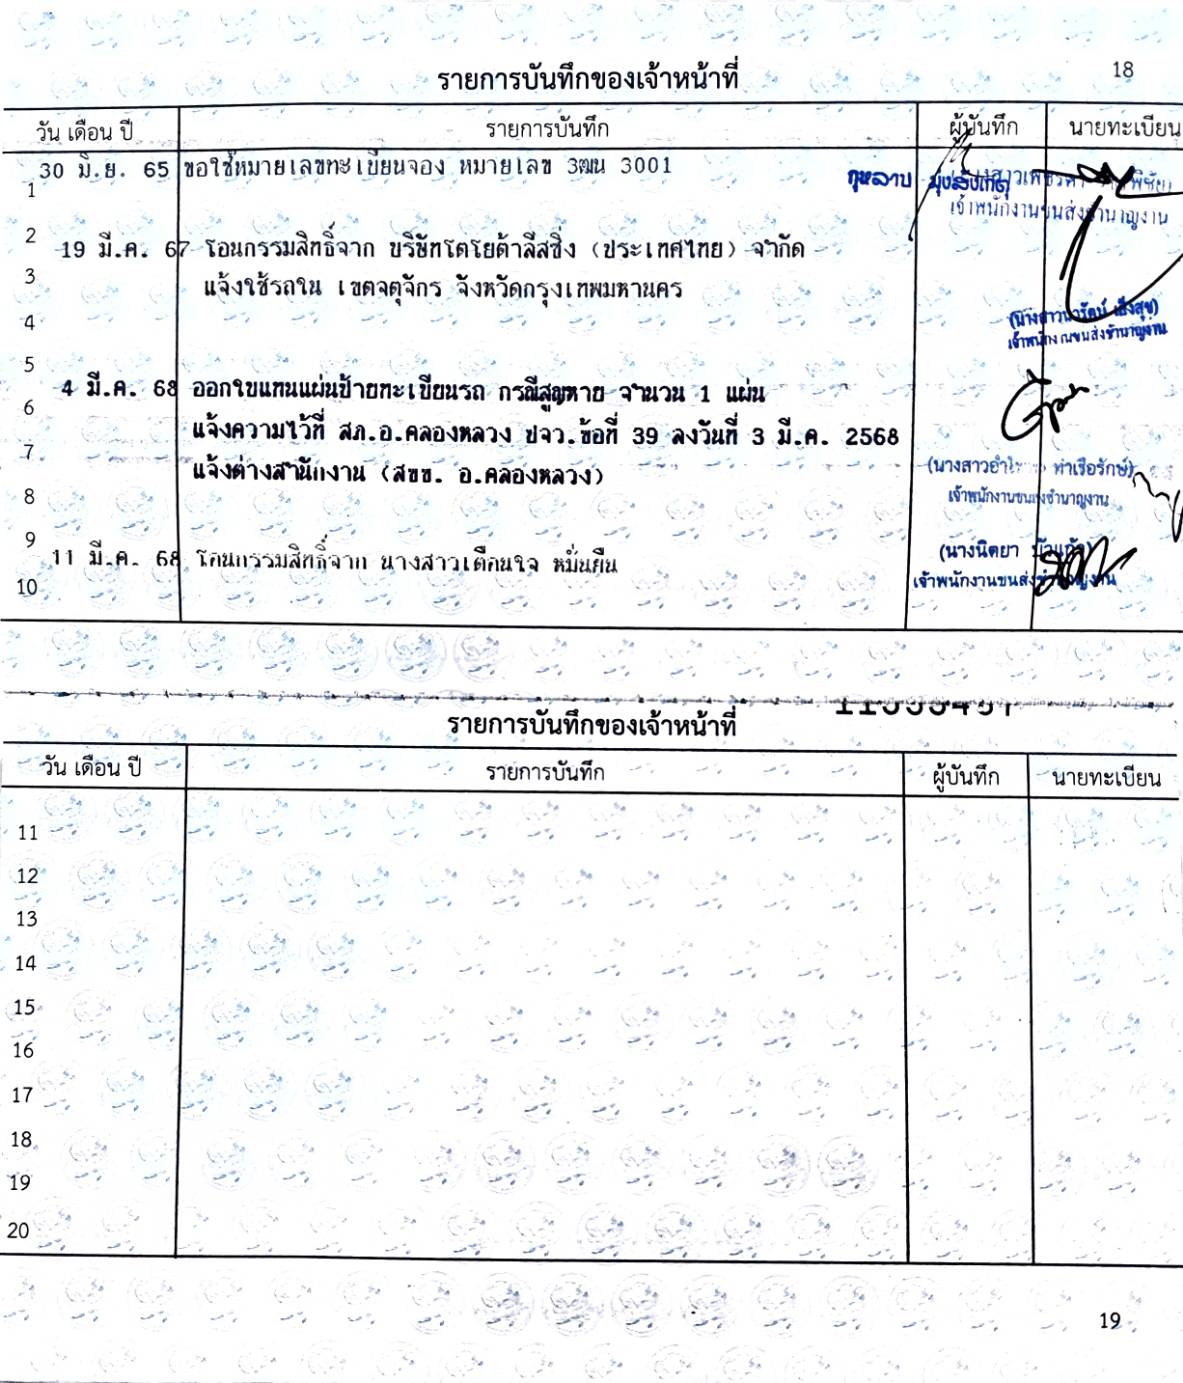 18
รายการบันทึกของเจ้าหน้าที่
วัน เดือน ปี รายการบันทึก ผู้บันทึก นายทะเบียน
1 30 มิ.ย. 65 ขอใช้หมายเลขทะเบียนจอง หมายเลข 3ฒน 3001
กุหลาบ มุ่งสังเกตุ
เจ้าพนักงานขนส่งชำนาญงาน
2 19 มี.ค. 67 โอนกรรมสิทธิ์จาก บริษัทโตโยต้าลีสซิ่ง (ประเทศไทย) จำกัด
3 แจ้งใช้รถใน เขตจตุจักร จังหวัดกรุงเทพมหานคร
4
เจ้าพนักงานขนส่งชำนาญงาน
5
6 4 มี.ค. 68 ออกใบแทนแผ่นป้ายทะเบียนรถ กรณีสูญหาย จำนวน 1 แผ่น
7 แจ้งความไว้ที่ สภ.อ.คลองหลวง ปจว.ข้อที่ 39 ลงวันที่ 3 มี.ค. 2568
แจ้งต่างสำนักงาน (สขข. อ.คลองหลวง)
(นางสาวอำไ ท่าเรือรักษ์)
8 เจ้าพนักงานขนส่งชำนาญงาน
9 11 มี.ค. 68 โอนกรรมสิทธิ์จาก นางสาวเตือนใจ หมั่นยืน
(นางนิตยา บัวแก้ว)
10 เจ้าพนักงานขนส่งชำนาญงาน
รายการบันทึกของเจ้าหน้าที่
วัน เดือน ปี รายการบันทึก ผู้บันทึก นายทะเบียน
11
12
13
14
15
16
17
18
19
20
19